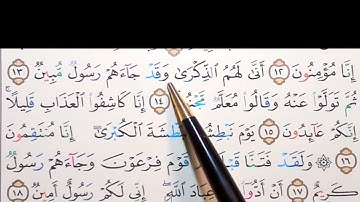 إِنَّا مُؤْمِنُونَ ١٢ أَنَّىٰ لَهُمُ الذِّكْرَىٰ وَقَدْ جَاءَهُمْ رَسُولٌ مُّبِينٌ ١٣
ثُمَّ تَوَلَّوْا عَنْهُ وَقَالُوا مُعَلَّمٌ ١٤ إِنَّا كَاشِفُوا الْعَذَابِ قَلِيلًا
إِنَّكُمْ عَائِدُونَ ١٥ يَوْمَ نَبْطِشُ الْكُبْرَىٰ إِنَّا مُنتَقِمُونَ
١٦ ۞ وَلَقَدْ فَتَنَّا قَوْمَ فِرْعَوْنَ وَجَاءَهُمْ رَسُولٌ
كَرِيمٌ ١٧ أَنْ أَدُّوا عِبَادَ اللَّهِ إِنِّي لَكُمْ رَسُولٌ أَمِينٌ ١٨